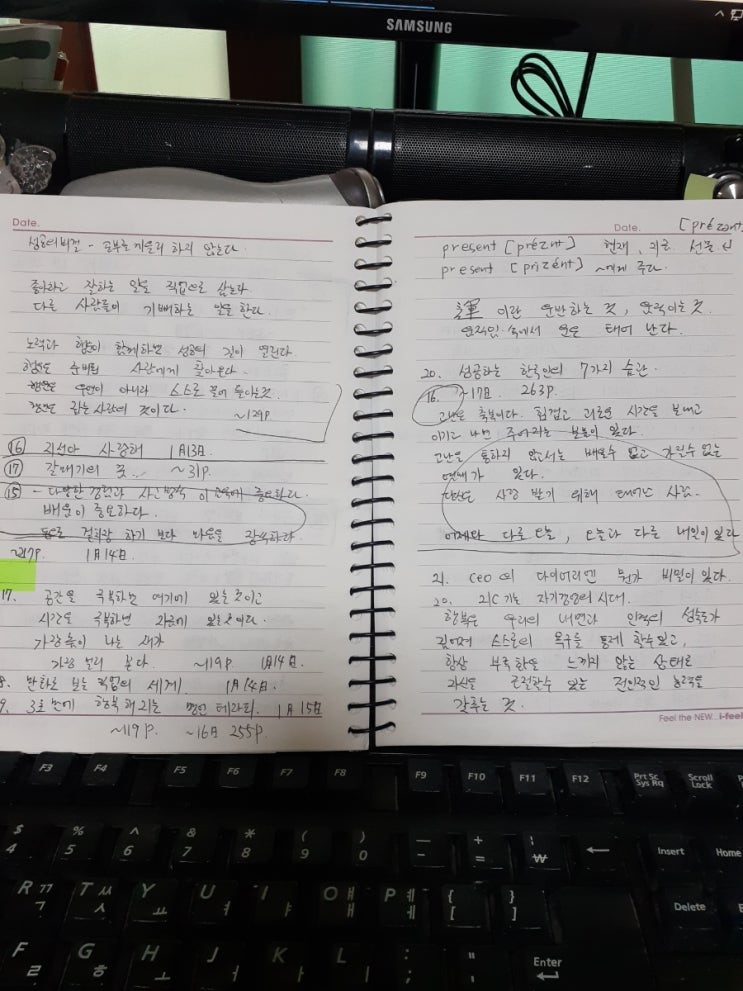 SAMSUNG
Date.
성공의 비결 - 공부를 게을리 하지 않는다.
좋아하고 잘하는 일을 직업으로 삼는다
다른 사람들이 기뻐하는 일을 한다.
노력과 행운이 함께하면 성공의 길이 열린다.
행운은 준비된 사람에게 찾아온다.
행운은 우연이 아니라 스스로 만들어 놓은것
찾는사람의 것이다.
~129P
⑯ 지선아 사랑해 1月13日.
⑰ 갈매기의 꿈... ~31P.
⑮ - 다양한 경험과 사고방식이 중요하다.
배움이 중요하다.
돈으로 치장하기 보다 마음을 장식하라.
~217P. 1月14日.
17. 공간을 극복하면 여기에 있는것이고
시간을 극복하면 지금에 있는것이다.
가장 높이 나는 새가
가장 멀리 본다. ~19P. 1月14日.
8. 만화로 보는 직업의 세계. 1月14日.
9. 3초만에 행복해지는 명언 테라피. 1月15日
~119P. ~16日 255P.
Date.
[prézənt]
present [prézənt] 현재, 지금 선물
present [prizént] ~에게 주다.
運 이란 운반하는 것, 움직이는 것.
움직임 속에서 운은 태어 난다.
20. 성공하는 한국인의 7가지 습관.
16. ~17日. 263P.
고난은 축복이다. 힘겹고 괴로운 시간을 보내고
이기고 나면 주어지는 보물이 있다.
고난을 통하지 않고서는 배울수 없고 가질수 없는
열매가 있다.
당신은 사랑 받기 위해 태어난 사람.
어제와 다른 오늘, 오늘과 다른 내일이 있다
21. CEO의 다이어리엔 뭔가 비밀이 있다.
20. 21C 가는 자기경영의 시대.
행복은 우리의 내면과 인격의 성숙도가
깊어져 스스로의 욕구를 통제할수있고,
항상 부족함을 느끼지 않는 상태로
자신을 조절할수 있는 전인적인 능력을
갖추는 것.
Feel the NEW...i-feel
F3 F4 F5 F6 F7 F8 F9 F10 F11 F12 Prt Sc SysRq Scroll Lock
$ 4 % 5 ^ 6 & 7 * 8 ( 9 ) 0 — - + = ¦ ₩ ← Insert Home
R ㄲ ㄱ T ㅆ ㅅ Y ㅛ U ㅕ I ㅑ O ㅒ ㅐ P ㅖ ㅔ { [ } ] Delete
F ㄹ G ㅎ H ㅗ J ㅓ K ㅏ L ㅣ : ; " ' Enter